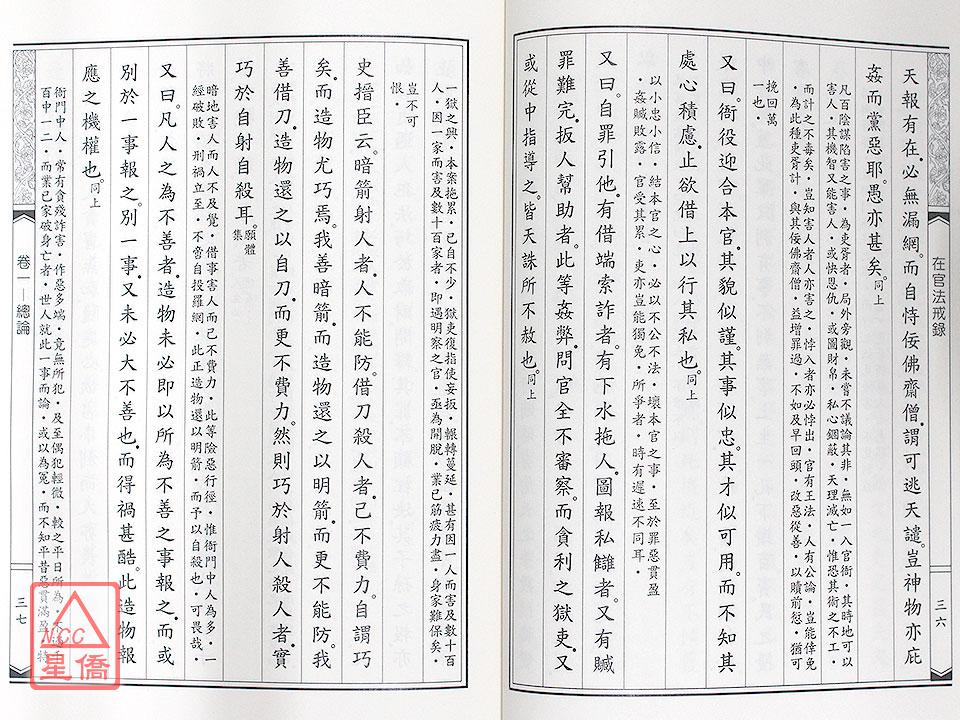 在官法戒錄
三六
天報有在。必無漏網。而自恃佞佛齋僧。謂可逃天譴。豈神物亦庇
姦而黨惡耶。愚亦甚矣。同上
凡百陰謀陷害之事‧為吏胥者‧局外旁觀‧未嘗不議論其非‧無如一入官衙‧其時地可以
害人‧其機智又能害人‧或快恩仇‧或圖財帛‧私心錮蔽‧天理滅亡‧惟恐其術之不工‧
而計之不毒矣‧豈知害人者人亦害之‧悖入者亦必悖出‧官有王法‧人有公論‧豈能倖免
‧為此種吏胥計‧與其佞佛齋僧‧益增罪過‧不如及早回頭‧改惡從善‧以贖前愆‧猶可
挽回萬
一也‧
又曰。衙役迎合本官。其貌似謹。其事似忠。其才似可用。而不知其
處心積慮。止欲借上以行其私也。同上
以小忠小信‧結本官之心‧必以不公不法‧壞本官之事‧至於罪惡貫盈
‧姦贓敗露‧官受其累‧吏亦豈能獨免‧所爭者‧時有遲速不同耳‧
又曰。自罪引他。有借端索詐者。有下水拖人。圖報私讎者。又有贓
罪難完。扳人幫助者。此等姦弊。問官全不審察。而貪利之獄吏。又
或從中指導之。皆天誅所不赦也。同上
一獄之興‧本案拖累‧已自不少‧獄吏復指使妄扳‧輾轉蔓延‧甚有因一人而害及數十百
人‧因一家而害及數十百家者‧即遇明察之官‧亟為開脫‧業已筋疲力盡‧身家難保矣‧
豈不可
恨‧
史搢臣云。暗箭射人者。人不能防。借刀殺人者。己不費力。自謂巧
矣。而造物尤巧焉。我善暗箭。而造物還之以明箭。而更不能防。我
善借刀。造物還之以自刀。而更不費力。然則巧於射人殺人者。實
巧於自射自殺耳。願體集
暗地害人而人不及覺‧借事害人而己不費力‧此等險惡行徑‧惟衙門中人為多‧一
經破敗‧刑禍立至‧不啻自投羅網‧此正造物還以明箭‧而予以自殺也‧可畏哉‧
又曰。凡人之為不善者。造物未必即以所為不善之事報之。而或
別於一事報之。別一事。又未必大不善也。而得禍甚酷。此造物報
應之機權也。同上
衙門中人‧常有貪殘詐害‧作惡多端‧竟無所犯‧及至偶犯輕微‧較之平日所為‧不過
百中一二‧而業已家破身亡者‧世人就此一事而論‧或以為冤‧而不知平昔惡貫滿盈‧特
卷一──總論
三七
NCC
星僑